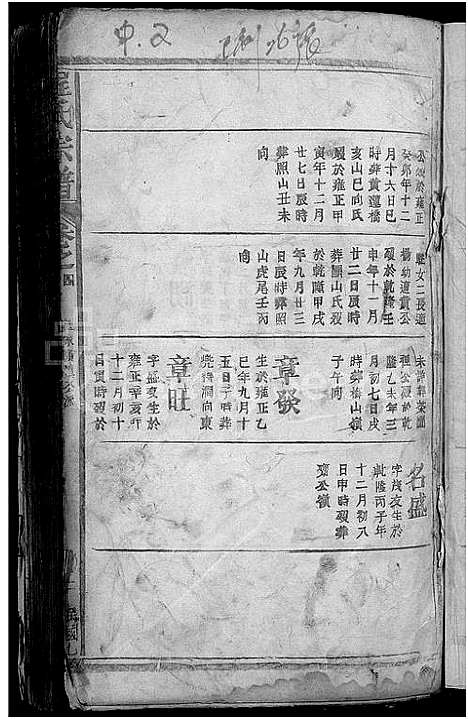 公歿於雍正
癸卯年十二
月十六日巳
時葬黄蓮橋
亥山巳向氏
歿於雍正甲
寅年十二月
廿七日辰時
葬照山丑未
向
女二長適
楊幼適黄公
歿於乾隆壬
申年十一月
廿二日辰時
葬關山氏歿
於乾隆甲戌
年九月廿三
日辰時葬照
山虎尾壬丙
向
程公歿於乾
隆乙未年三
月初七日戌
時葬梅山嶺
子午向
章發
生於雍正乙
巳年九月十
五日子時葬
向東
章旺
字盛友生於
雍正辛亥年
十二月初十
日寅時歿於
名盛
字茂友生於
乾隆丙子年
十二月初八
日申時歿葬
公嶺
氏宗譜
卷之四